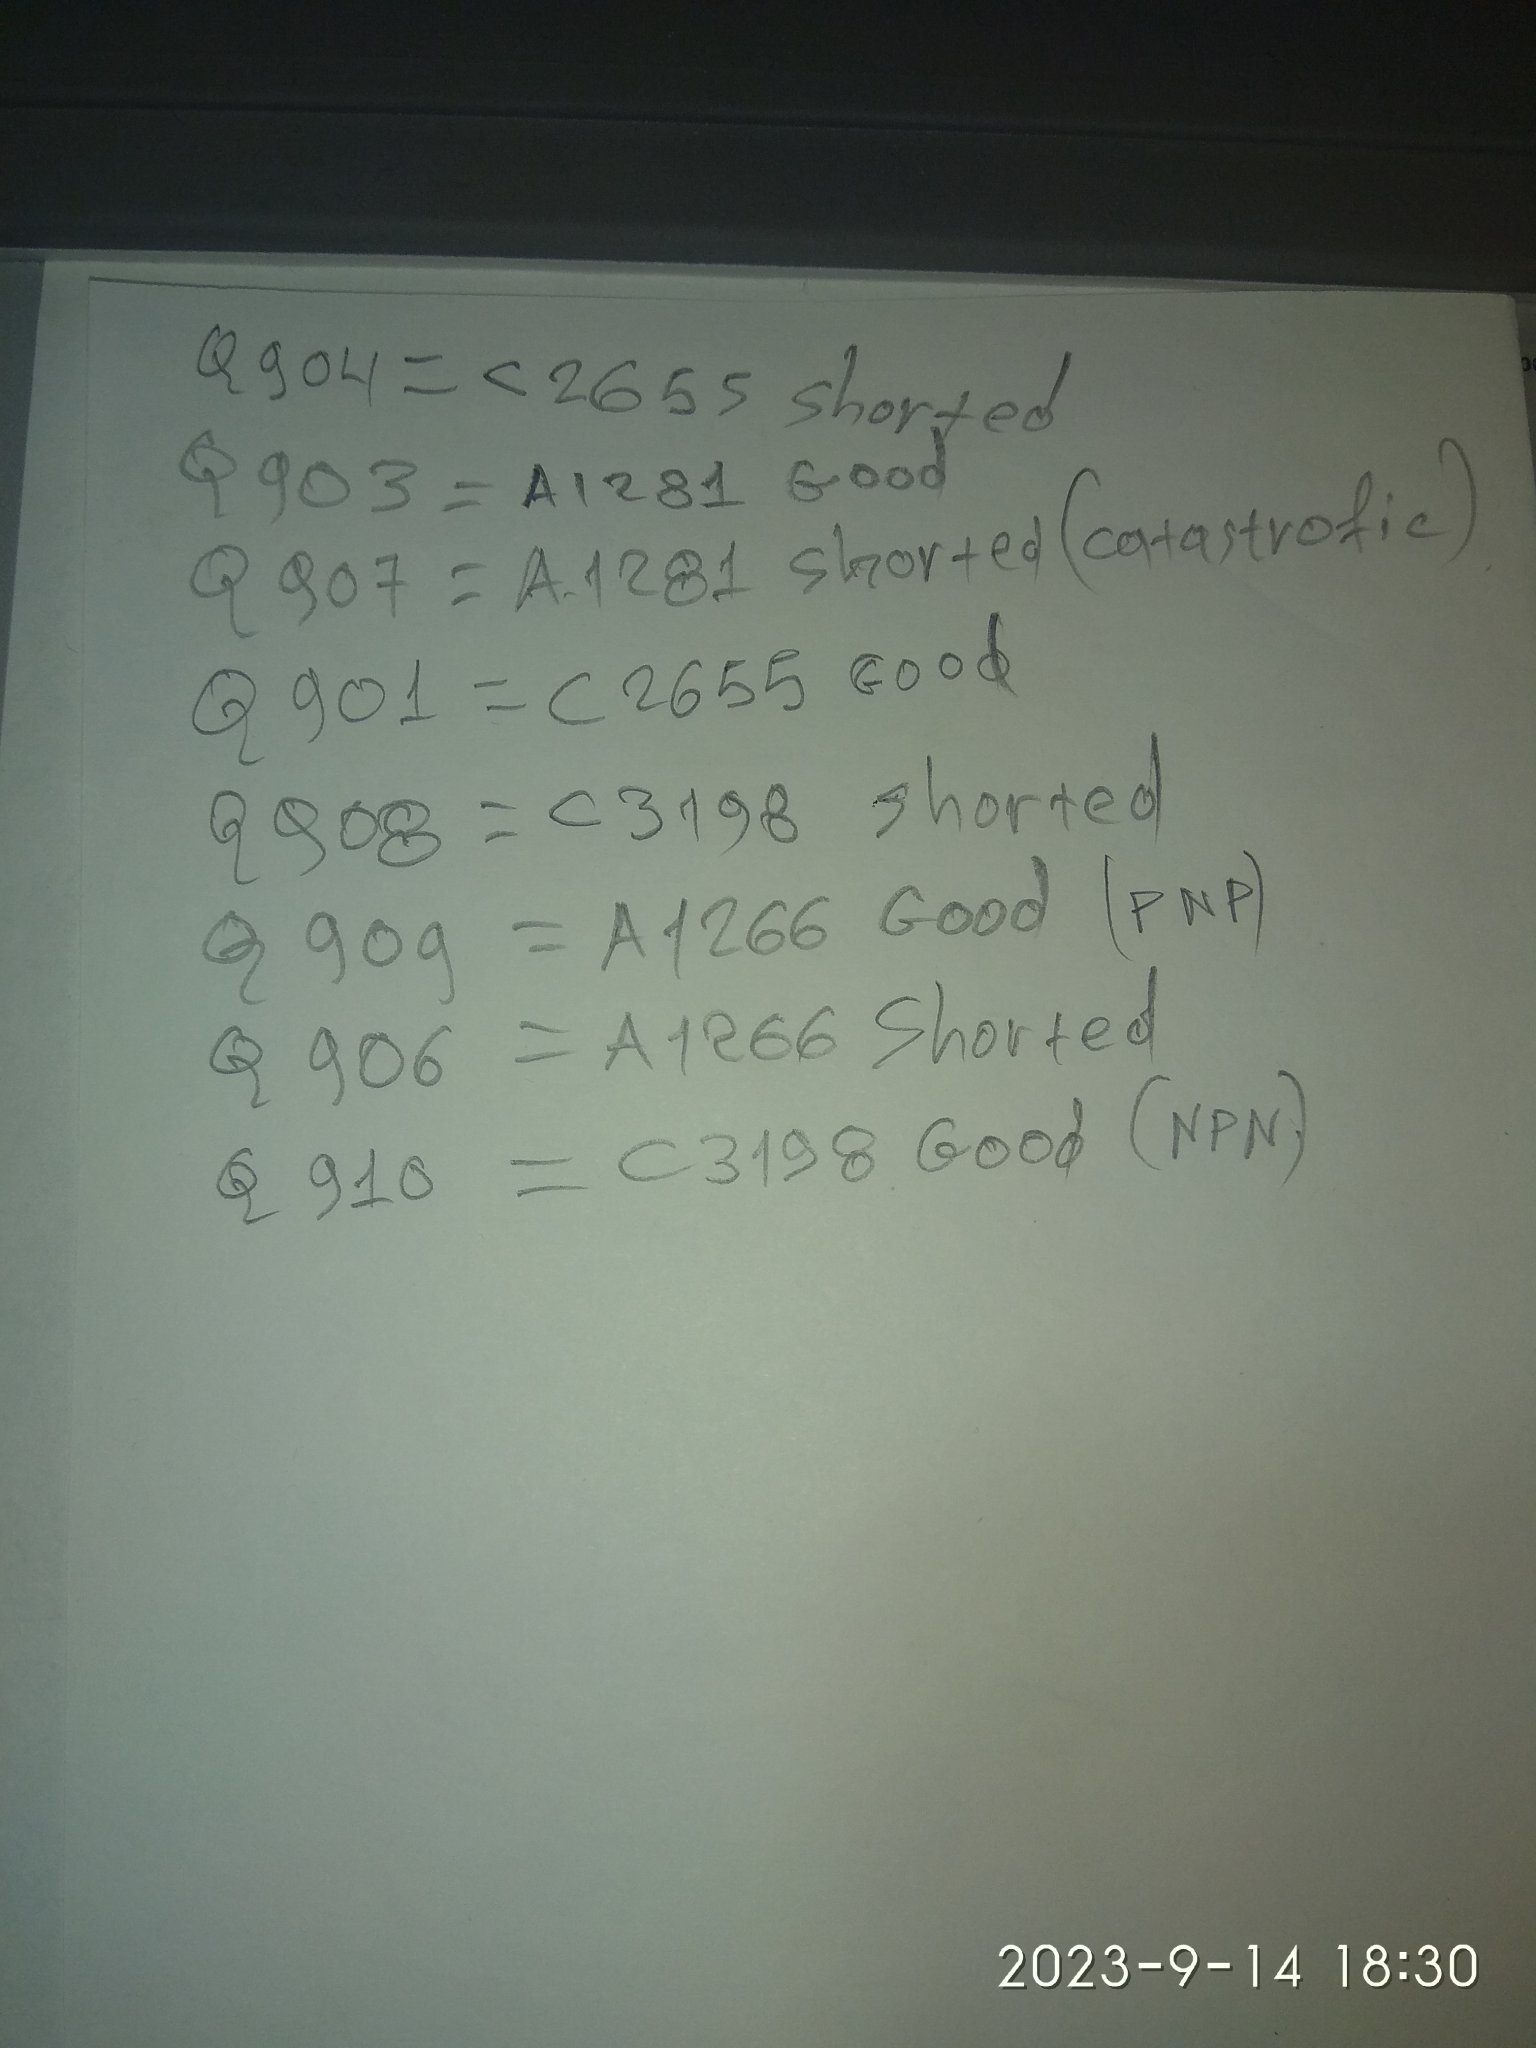 Q904 = C2655 shorted
Q903 = A1281 Good
Q907 = A.1281 shorted (catastrofic)
Q901 = C2655 Good
Q908 = C3198 shorted
Q909 = A1266 Good (PNP)
Q906 = A1266 Shorted
Q910 = C3198 Good (NPN)
2023-9-14 18:30